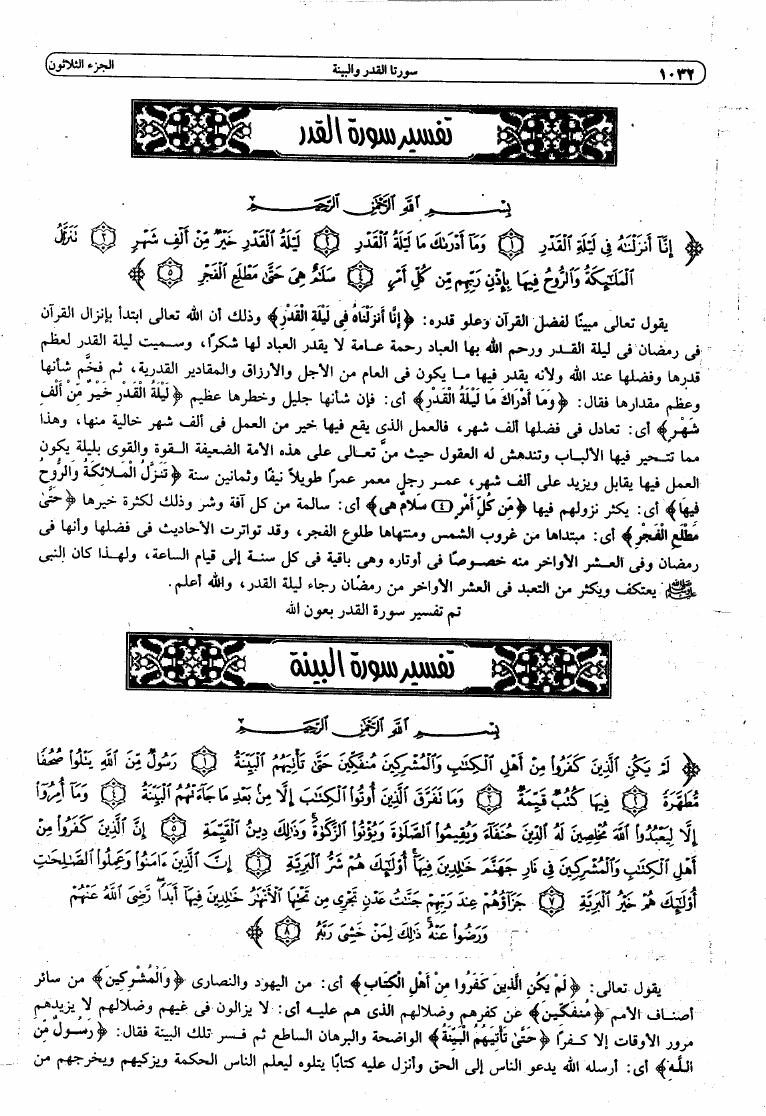 ١٠٣٢ سورتا القدر والبينة الجزء الثلاثون
تفسير سورة القدر
بِسْمِ اللَّهِ الرَّحْمَٰنِ الرَّحِيمِ
﴿ إِنَّا أَنزَلْنَٰهُ فِى لَيْلَةِ الْقَدْرِ ١ وَمَا أَدْرَىٰكَ مَا لَيْلَةُ الْقَدْرِ ٢ لَيْلَةُ الْقَدْرِ خَيْرٌ مِّنْ أَلْفِ شَهْرٍ ٣ تَنَزَّلُ
الْمَلَٰٓئِكَةُ وَالرُّوحُ فِيهَا بِإِذْنِ رَبِّهِم مِّن كُلِّ أَمْرٍ ٤ سَلَٰمٌ هِىَ حَتَّىٰ مَطْلَعِ الْفَجْرِ ٥ ﴾
يقول تعالى مبينًا لفضل القرآن وعلو قدره: ﴿إِنَّا أَنزَلْنَاهُ فِي لَيْلَةِ الْقَدْرِ﴾ وذلك أن الله تعالى ابتدأ بإنزال القرآن
فى رمضان فى ليلة القـدر ورحم الله بها العباد رحمة عـامة لا يقدر العباد لها شكرًا، وسـميت ليلة القدر لعظم
قدرها وفضلها عند الله ولأنه يقدر فيها مـا يكون فى العام من الأجل والأرزاق والمقادير القدرية، ثم فخَّم شأنها
وعظم مقدارها فقال: ﴿وَمَا أَدْرَاكَ مَا لَيْلَةُ الْقَدْرِ﴾ أى: فإن شأنها جليل وخطرها عظيم ﴿لَيْلَةُ الْقَدْرِ خَيْرٌ مِّنْ أَلْفِ
شَهْرٍ﴾ أى: تعادل فى فضلها ألف شهر، فالعمل الذى يقع فيها خير من العمل فى ألف شهر خالية منها، وهذا
مما تتـحير فيها الألبـاب وتندهش له العقول حيث منَّ تعـالى على هذه الأمة الضعيفة القـوة والقوى بليلة يكون
العمل فيها يقابل ويزيد على ألف شهر، عمـر رجل معمر عمرًا طويلاً نيفًا وثمانين سنة ﴿تَنَزَّلُ الْمَلائِكَةُ وَالرُّوحُ
فِيهَا﴾ أى: يكثر نزولهم فيها ﴿مِّن كُلِّ أَمْرٍ (٤) سَلامٌ هِيَ﴾ أى: سالمة من كل آفة وشر وذلك لكثرة خيرها ﴿حَتَّىٰ
مَطْلَعِ الْفَجْرِ﴾ أى: مبتداها من غروب الشمس ومنتهاها طلوع الفجر، وقد تواترت الأحاديث فى فضلها وأنها فى
رمضان وفى العـشر الأواخر منه خصـوصًا فى أوتاره وهى باقية فى كل سنـة إلى قيام الساعة، ولهـذا كان النبى
ﷺ يعتكف ويكثر من التعبد فى العشر الأواخر من رمضان رجاء ليلة القدر، والله أعلم.
تم تفسير سورة القدر بعون الله
تفسير سورة البينة
بِسْمِ اللَّهِ الرَّحْمَٰنِ الرَّحِيمِ
﴿ لَمْ يَكُنِ الَّذِينَ كَفَرُوا مِنْ أَهْلِ الْكِتَٰبِ وَالْمُشْرِكِينَ مُنفَكِّينَ حَتَّىٰ تَأْتِيَهُمُ الْبَيِّنَةُ ١ رَسُولٌ مِّنَ اللَّهِ يَتْلُوا صُحُفًا
مُّطَهَّرَةً ٢ فِيهَا كُتُبٌ قَيِّمَةٌ ٣ وَمَا تَفَرَّقَ الَّذِينَ أُوتُوا الْكِتَٰبَ إِلَّا مِنۢ بَعْدِ مَا جَآءَتْهُمُ الْبَيِّنَةُ ٤ وَمَآ أُمِرُوٓا
إِلَّا لِيَعْبُدُوا اللَّهَ مُخْلِصِينَ لَهُ الدِّينَ حُنَفَآءَ وَيُقِيمُوا الصَّلَوٰةَ وَيُؤْتُوا الزَّكَوٰةَ وَذَٰلِكَ دِينُ الْقَيِّمَةِ ٥ إِنَّ الَّذِينَ كَفَرُوا مِنْ
أَهْلِ الْكِتَٰبِ وَالْمُشْرِكِينَ فِى نَارِ جَهَنَّمَ خَٰلِدِينَ فِيهَآ أُو۟لَٰٓئِكَ هُمْ شَرُّ الْبَرِيَّةِ ٦ إِنَّ الَّذِينَ ءَامَنُوا وَعَمِلُوا الصَّٰلِحَٰتِ
أُو۟لَٰٓئِكَ هُمْ خَيْرُ الْبَرِيَّةِ ٧ جَزَآؤُهُمْ عِندَ رَبِّهِمْ جَنَّٰتُ عَدْنٍ تَجْرِى مِن تَحْتِهَا الْأَنْهَٰرُ خَٰلِدِينَ فِيهَآ أَبَدًا رَّضِىَ اللَّهُ عَنْهُمْ
وَرَضُوا عَنْهُ ذَٰلِكَ لِمَنْ خَشِىَ رَبَّهُ ٨ ﴾
يقول تعالى: ﴿لَمْ يَكُنِ الَّذِينَ كَفَرُوا مِنْ أَهْلِ الْكِتَابِ﴾ أى: من اليهود والنصارى ﴿وَالْمُشْرِكِينَ﴾ من سائر
أصنـاف الأمم ﴿مُنفَكِّينَ﴾ عن كفرهـم وضلالهم الذى هم عليـه أى: لا يزالون فى غيهم وضلالهم لا يزيدهم
مرور الأوقات إلا كـفرًا ﴿حَتَّىٰ تَأْتِيَهُمُ الْبَيِّنَةُ﴾ الواضحة والبرهان الساطع ثم فـسر تلك البينة فقال: ﴿رَسُولٌ مِّنَ
اللَّهِ﴾ أى: أرسله الله يدعو الناس إلى الحق وأنزل عليه كتابًا يتلوه ليعلم الناس الحكمة ويزكيهم ويخرجهم من